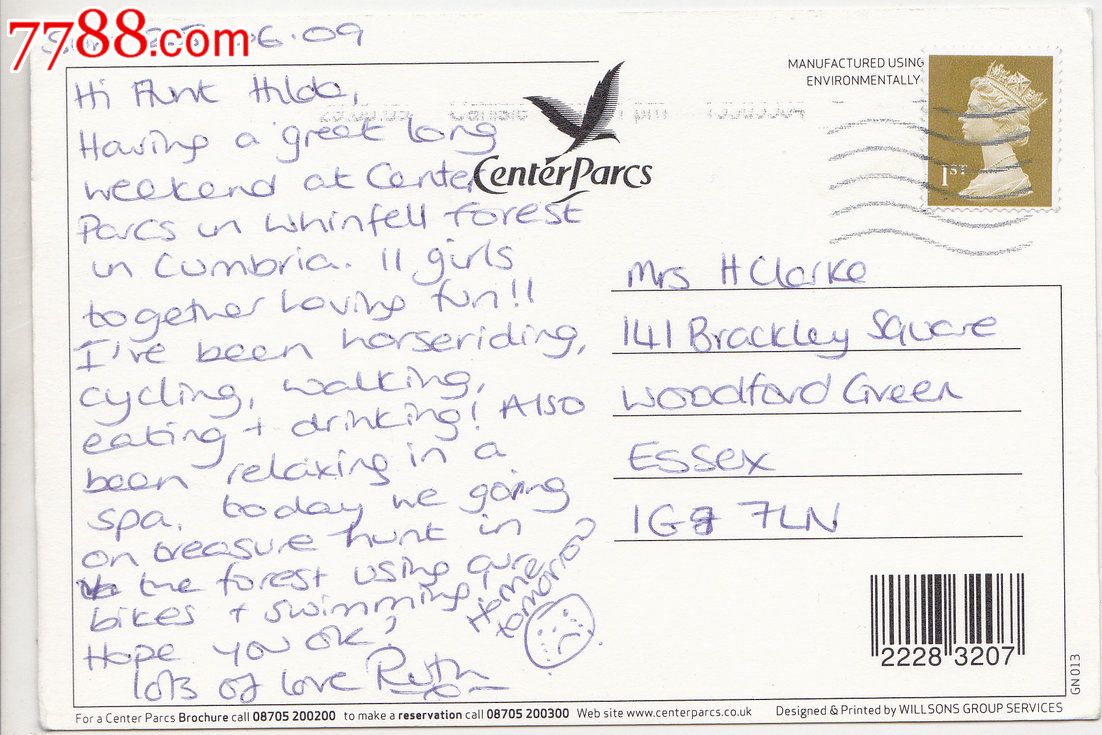 7788.com
06.09
Hi Aunt Hilda,
Having a great long
weekend at Center
Parcs in Whinfell Forest
in Cumbria. 11 girls
together having fun!!
I've been horseriding,
cycling, walking,
eating + drinking! Also
been relaxing in a
spa. today we going
on treasure hunt in
the forest using our
bikes + swimming.
Home
tomorrow
Hope you ok?
lots of love Ruth
CenterParcs
MANUFACTURED USING
ENVIRONMENTALLY
1ST
Mrs H Clarke
141 Brackley Square
Woodford Green
Essex
IG8 7LN
2228 3207
GN 013
For a Center Parcs Brochure call 08705 200200 to make a reservation call 08705 200300 Web site www.centerparcs.co.uk Designed & Printed by WILLSONS GROUP SERVICES